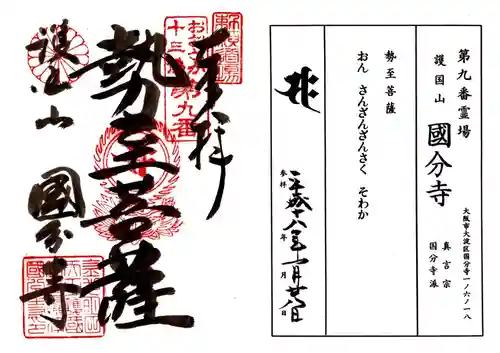 奉拝
勢至菩薩
護国山
國分寺
おおさか
十三佛第九番
第九番霊場
護国山
國分寺
大阪市大淀区国分寺一ノ六ノ一八
真言宗
国分寺派
勢至菩薩
おん さんざんざんさく そわか
参拝
平成十八年一月廿八日
年
月